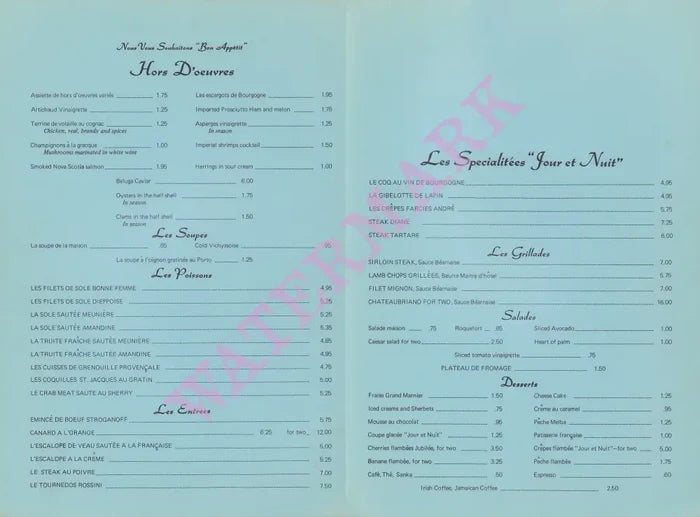 Nous Vous Souhaitons "Bon Appétit"
Hors D'oeuvres
Assiette de hors d'oeuvres variés 1.75
Les escargots de Bourgogne 1.95
Artichaud Vinaigrette 1.25
Imported Prosciutto Ham and melon 1.75
Terrine de volaille au cognac 1.25
Chicken, veal, brandy and spices
Asperges vinaigrette 1.25
In season
Champignons à la grecque 1.00
Mushrooms marinated in white wine
Imperial shrimps cocktail 1.50
Smoked Nova Scotia salmon 1.95
Herrings in sour cream 1.00
Beluga Caviar 6.00
Oysters in the half shell 1.75
In season
Clams in the half shell 1.50
In season
Les Soupes
La soupe de la maison .85
Cold Vichysoise .95
La soupe à l'oignon gratinée au Porto 1.25
Les Poissons
LES FILETS DE SOLE BONNE FEMME 4.95
LES FILETS DE SOLE DIEPPOISE 5.25
LA SOLE SAUTÉE MEUNIÈRE 5.25
LA SOLE SAUTÉE AMANDINE 5.35
LA TRUITE FRAÎCHE SAUTÉE MEUNIÈRE 4.85
LA TRUITE FRAÎCHE SAUTÉE AMANDINE 4.95
LES CUISSES DE GRENOUILLE PROVENÇALE 4.75
LES COQUILLES ST. JACQUES AU GRATIN 5.00
LE CRAB MEAT SAUTE AU SHERRY 5.25
Les Entrees
EMINCÉ DE BOEUF STROGANOFF 5.75
CANARD A L'ORANGE 6.25 for two 12.00
L'ESCALOPE DE VEAU SAUTÉE A LA FRANÇAISE 6.00
L'ESCALOPE A LA CRÈME 5.25
LE STEAK AU POIVRE 7.00
LE TOURNEDOS ROSSINI 7.50
Les Specialitées "Jour et Nuit"
LE COQ AU VIN DE BOURGOGNE 4.95
LA GIBELOTTE DE LAPIN 4.95
LES CRÊPES FARCIES ANDRÉ 5.75
STEAK DIANE 7.25
STEAK TARTARE 6.00
Les Grillades
SIRLOIN STEAK, Sauce Béarnaise 7.00
LAMB CHOPS GRILLÉES, Beurre Maitre d'hôtel 5.75
FILET MIGNON, Sauce Béarnaise 7.00
CHATEAUBRIAND FOR TWO, Sauce Béarnaise 16.00
Salades
Salade maison .75
Roquefort .95
Sliced Avocado 1.00
Caesar salad for two 2.50
Heart of palm 1.00
Sliced tomato vinaigrette .75
PLATEAU DE FROMAGE 1.50
Desserts
Fraise Grand Marnier 1.50
Cheese Cake 1.25
Iced creams and Sherbets .75
Crème au caramel .95
Mousse au chocolat .95
Pêche Melba 1.25
Coupe glacée "Jour et Nuit" 1.25
Patisserie française 1.00
Cherries flambées Jubilée, for two 3.50
Crêpes flambées "Jour et Nuit"—for two 5.00
Banane flambée, for two 3.25
Pêche flambée 1.75
Café, Thé, Sanka .50
Espresso .60
Irish Coffee, Jamaican Coffee 2.50
WATERMARK